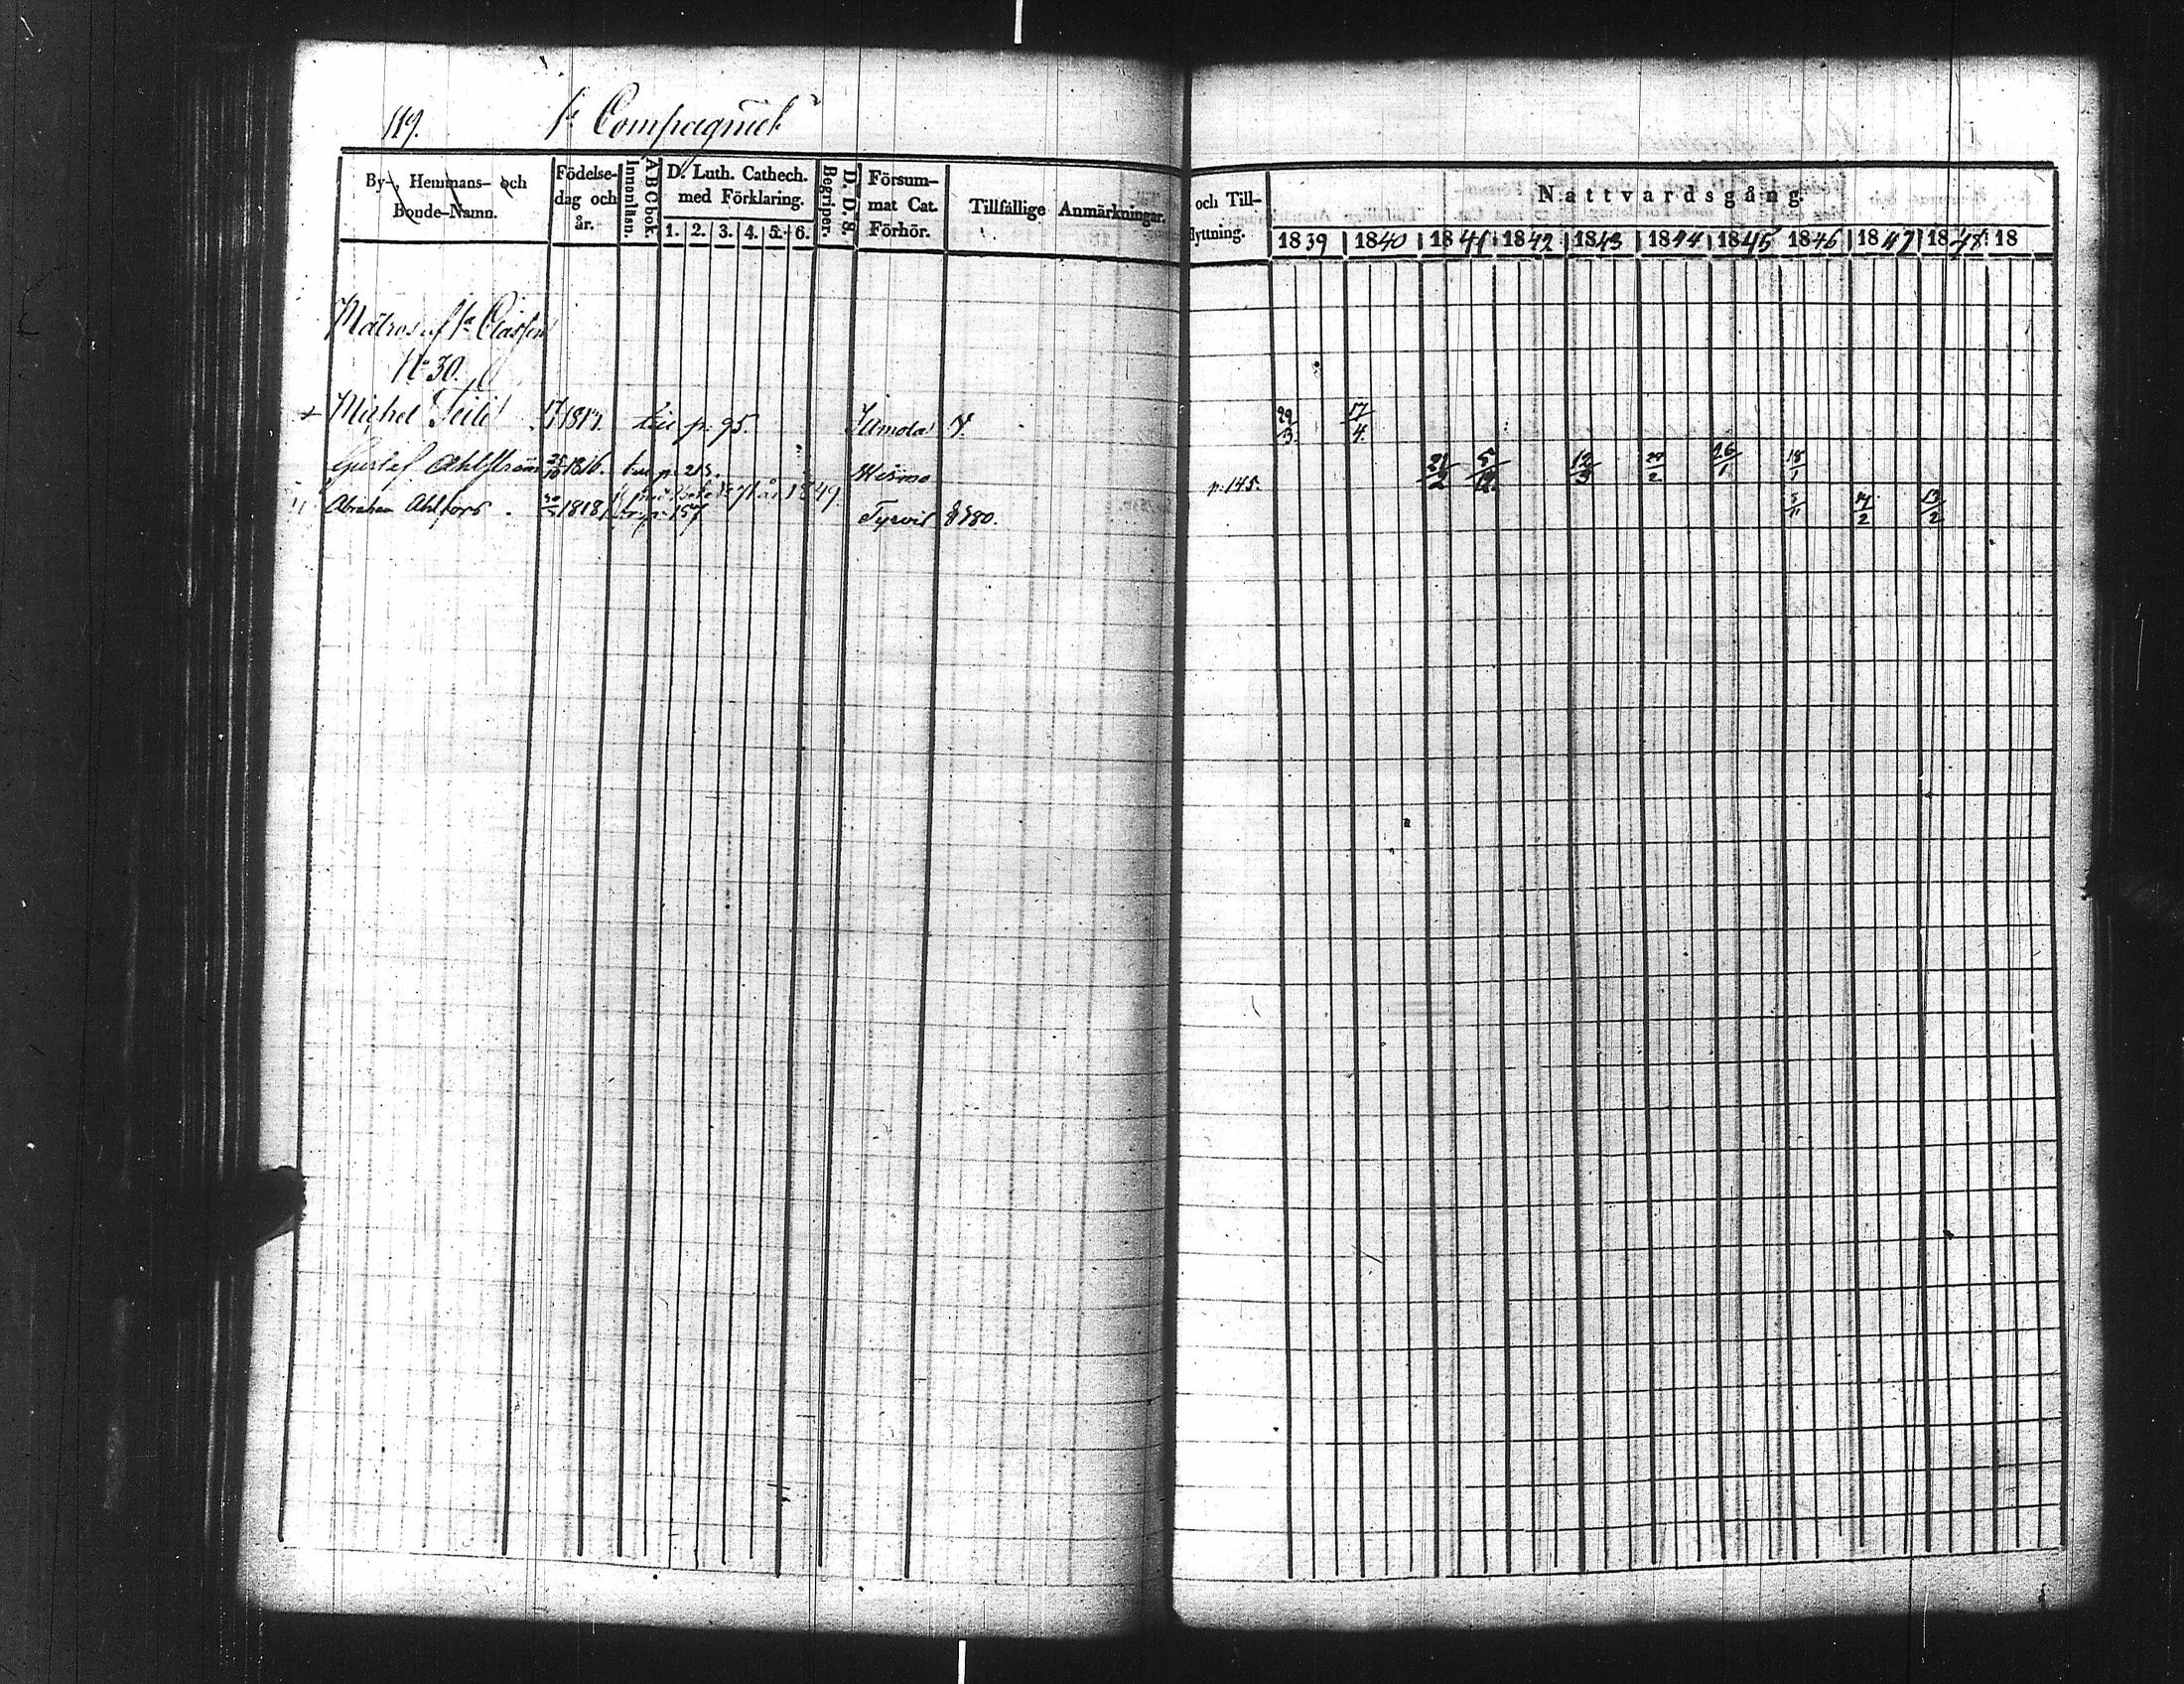 119. 1a Compagniet
By-, Hemmans- och Bonde-Namn.
Födelse-dag och år.
Innanläsn.
A B C bok.
D. Luth. Cathech. med Förklaring.
1. 2. 3. 4. 5. 6.
Begriper.
D. D. g.
Försum-mat Cat. Förhör.
Tillfällige Anmärkningar.
och Till-
flyttning.
Nattvardsgång.
1839 1840 1841 1842 1843 1844 1845 1846 1847 1848 18
Matros af 1a Classen
No 30.
Michel p. 95. 29/3 17/4
Gustaf Ahlström 1816. p. 213. p. 145. 21/2 5/12 12/3 2 26/1 18/1
Abraham Ahlfors 1818 p. 157 Tyrvis 5/11 2 13/2
1849